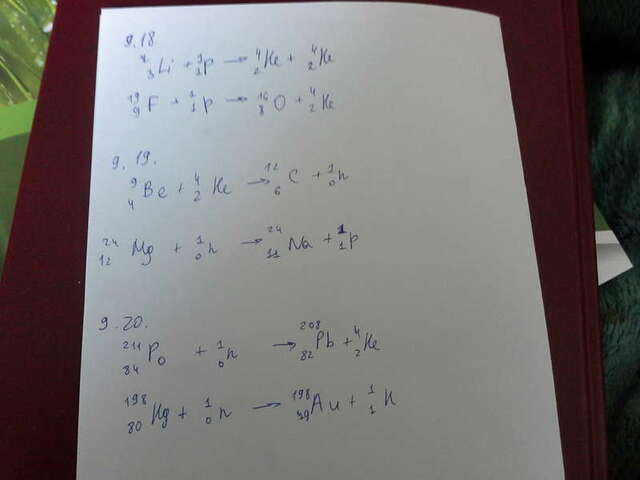 9.18
⁷₃Li + ¹₁p → ⁴₂He + ⁴₂He
¹⁹₉F + ¹₁p → ¹⁶₈O + ⁴₂He
9.19.
⁹₄Be + ⁴₂He → ¹²₆C + ¹₀n
²⁴₁₂Mg + ¹₀n → ²⁴₁₁Na + ¹₁p
9.20.
²¹¹₈₄Po + ¹₀n → ²⁰⁸₈₂Pb + ⁴₂He
¹⁹⁸₈₀Hg + ¹₀n → ¹⁹⁸₇₉Au + ¹₁H